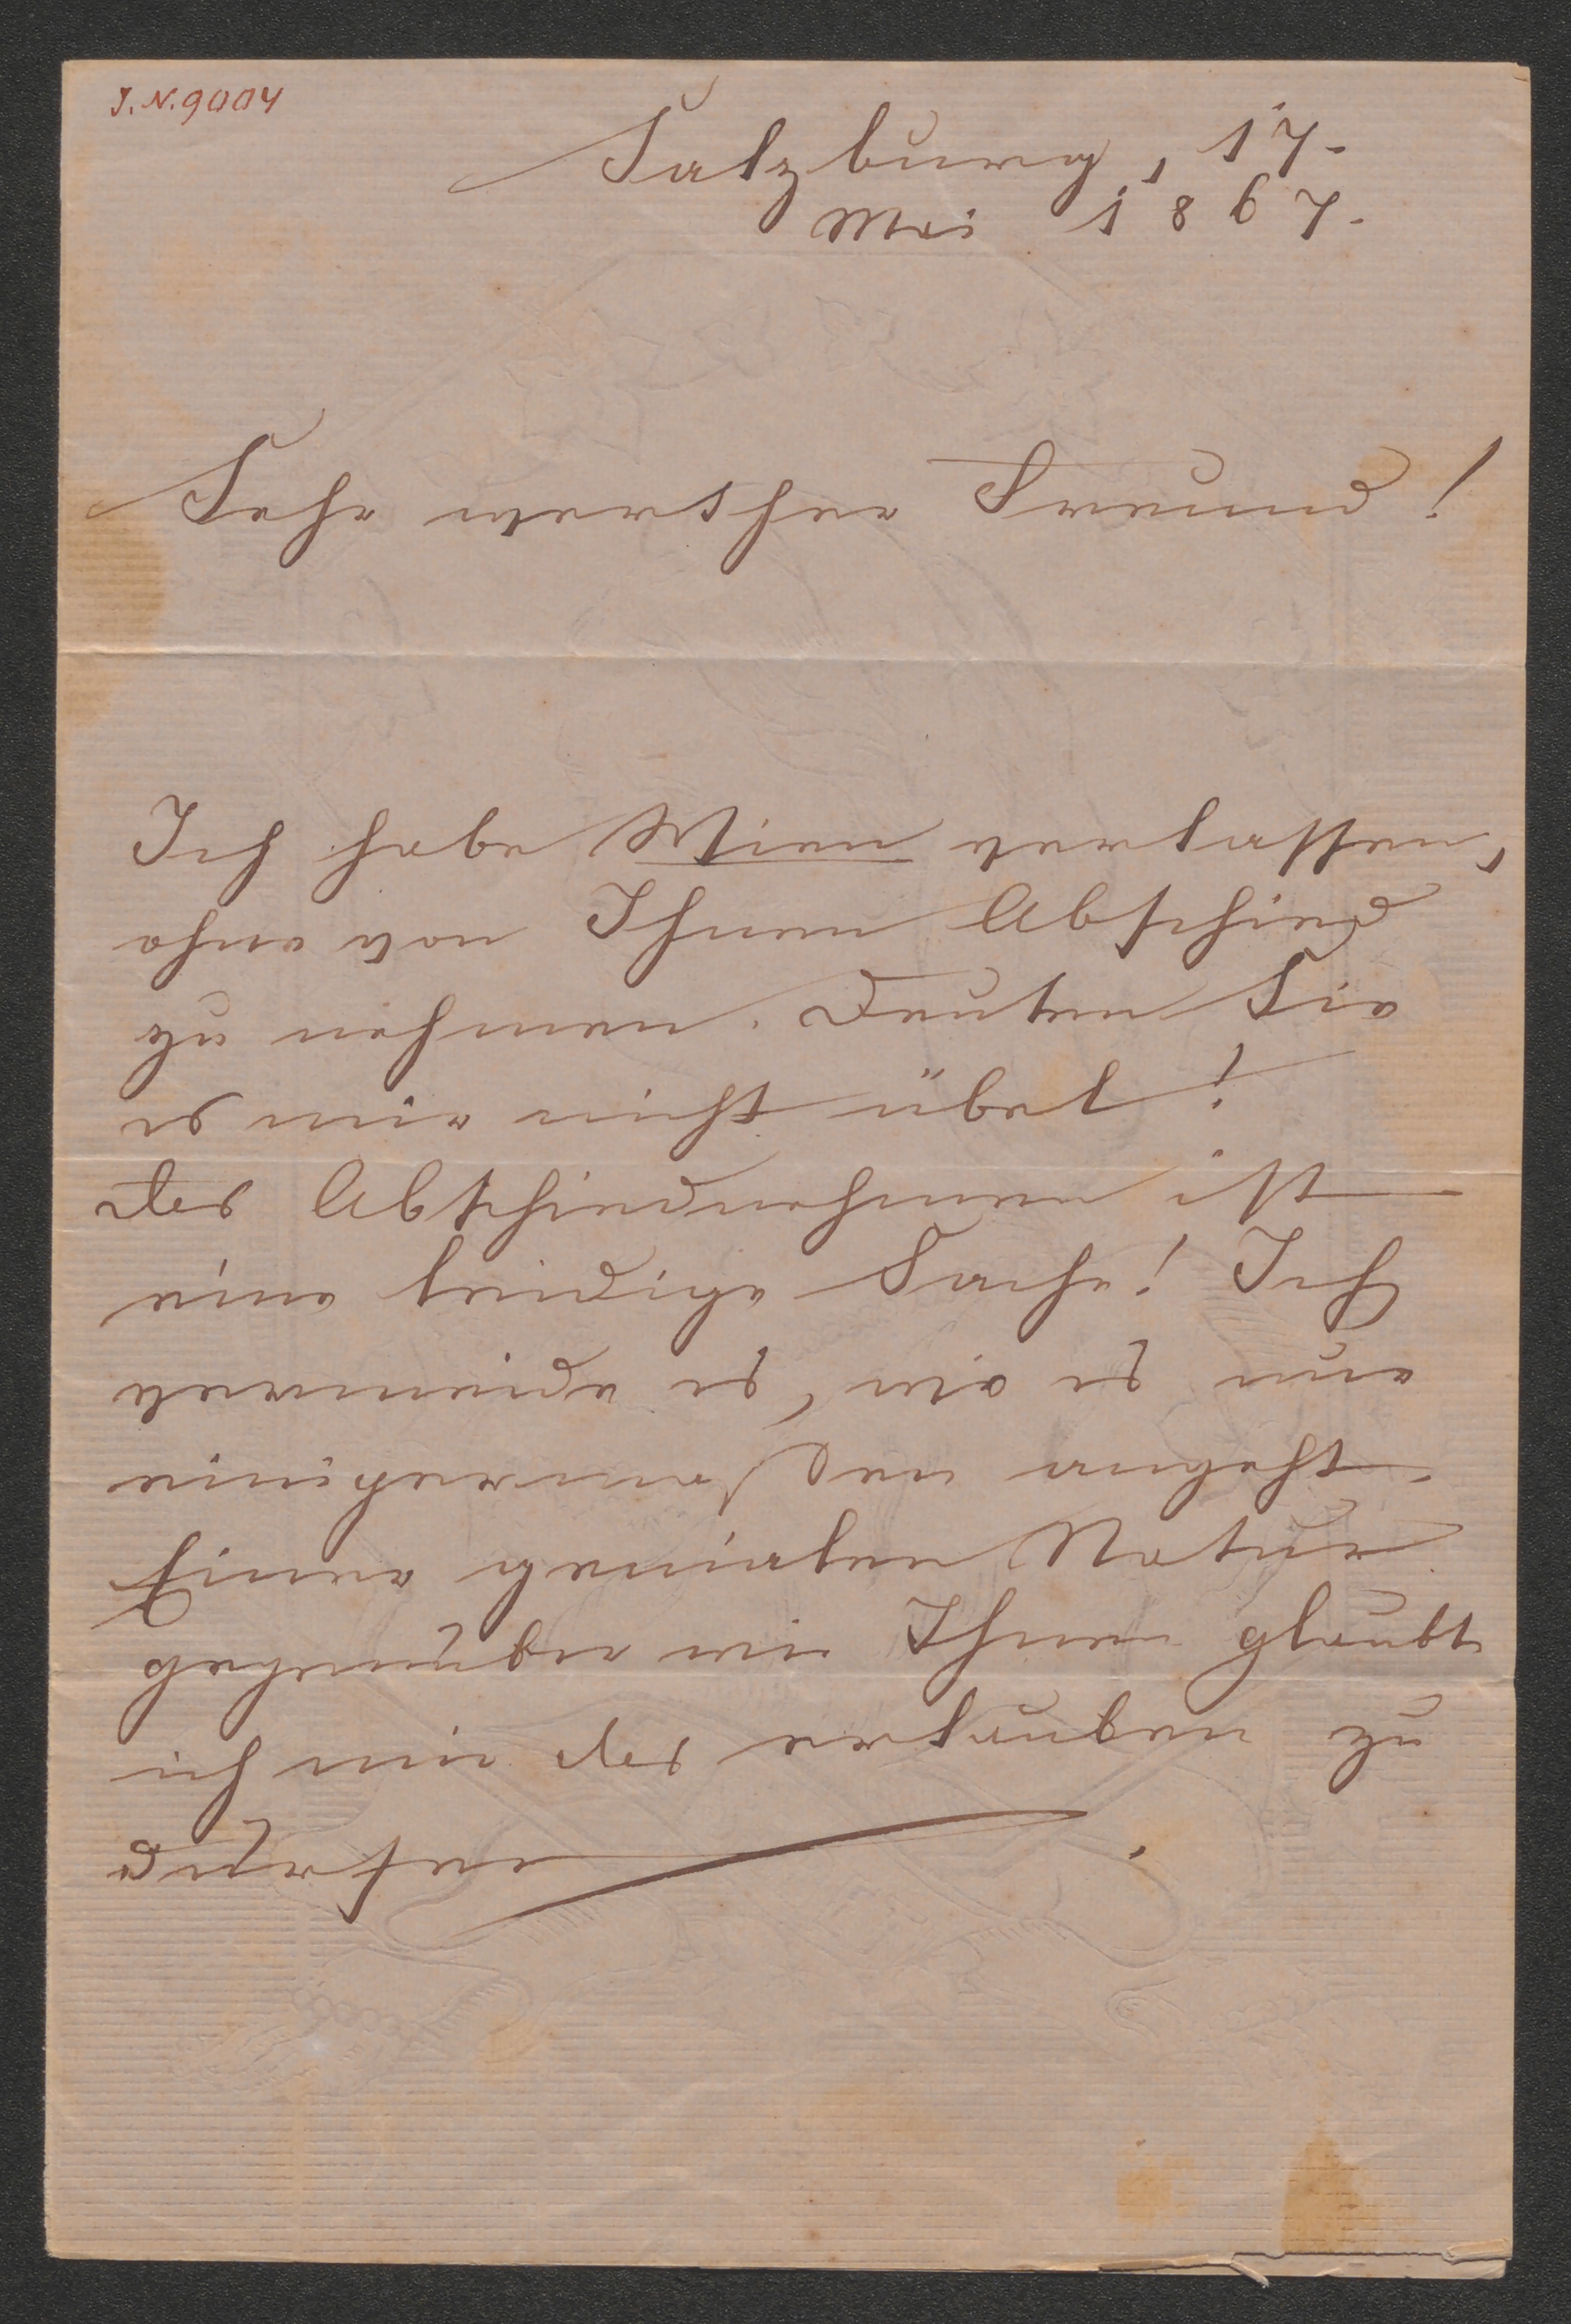 J.N.9004
Salzburg, 17.
Mai 1897.
Sehr werther Freund!
Ich habe Wien verlassen,
ohne von Ihnen Abschied
zu nehmen. Deuten Sie
es mir nicht übel!
Das Abschiednehmen ist
eine leidige Sache! Ich
vermeide es, wie es nur
einigermaßen angeht.
Einer genialen Natur
gegenüber wie Ihnen glaubt
ich mir das erlauben zu
dürfen.